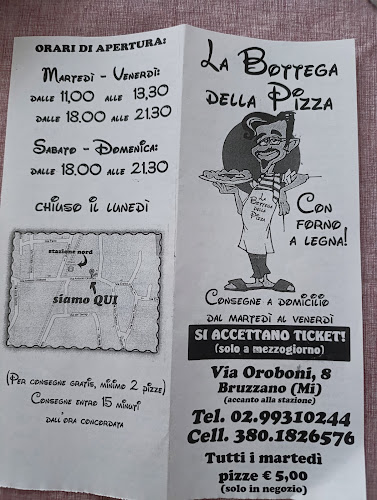 ORARI DI APERTURA:
MARTEDÌ - VENERDÌ:
DALLE 11,00 ALLE 13,30
DALLE 18.00 ALLE 21.30
SABATO - DOMENICA:
DALLE 18.00 ALLE 21.30
CHIUSO IL LUNEDÌ
stazione nord
siamo QUI
(PER CONSEGNE GRATIS, MINIMO 2 PIZZE)
CONSEGNE ENTRO 15 MINUTI
DALL'ORA CONCORDATA
LA BOTTEGA
DELLA PIZZA
LA BOTTEGA
DELLA
PIZZA
CON
FORNO
A LEGNA!
CONSEGNE A DOMICILIO
DAL MARTEDÌ AL VENERDÌ
SI ACCETTANO TICKET!
(solo a mezzogiorno)
Via Oroboni, 8
Bruzzano (Mi)
(accanto alla stazione)
Tel. 02.99310244
Cell. 380.1826576
Tutti i martedì
pizze € 5,00
(solo in negozio)